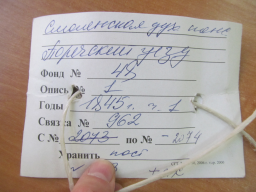 Смоленская дух конс
Поречский уезд
Фонд № 43
Опись № 1
Годы 1845 г. ч. 1
Связка № 962
С № 2073 по № - 2074
Хранить пост